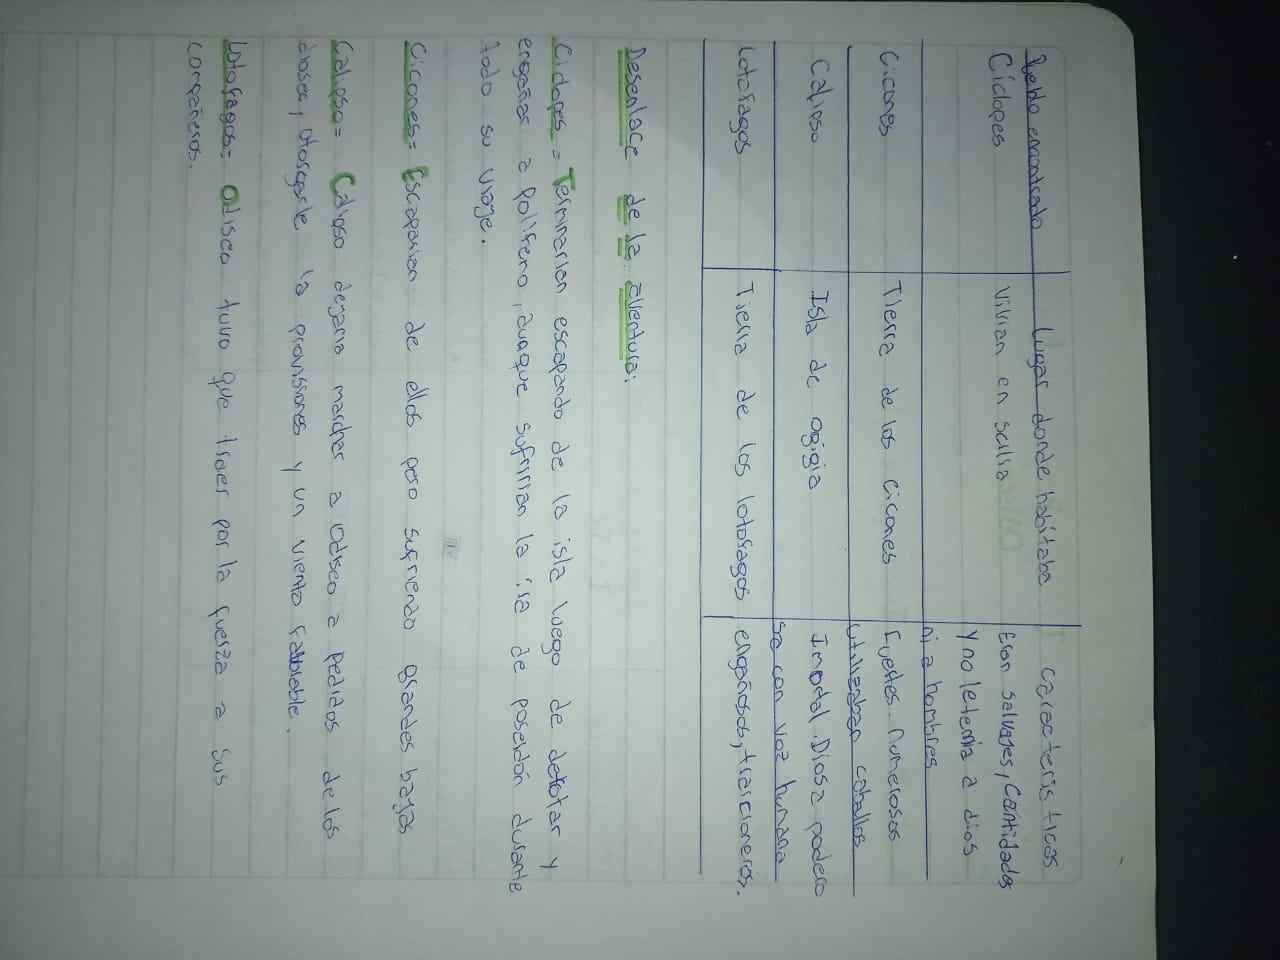 Pueblo encontrado Lugar donde habitaba Caracteristicas
Cíclopes Vivian en scilia Eran salvajes, Cantidades
y no le temia a dios
ni a hombres
Cicones Tierra de los cicones Fuertes. numerosos
utilizaban caballos
Calipso Isla de ogigia Inmortal. Diosa podero
sa con voz humana
Lotofagos Tierra de los lotofagos engañosos, traicioneros.
Desenlace de la aventura:
Ciclopes = Terminarian escapando de la isla luego de derrotar y
engañar a polifemo, aunque sufririan la ira de poseidón durante
todo su viaje.
Cicones = Escaparian de ellos pero sufriendo grandes bajas
Calipso = Calipso dejaria marchar a Odiseo a pedidos de los
dioses, otorgarle la provissiones y un viento favorable.
Lotofagos = Odiseo tuvo que traer por la fuerza a sus
compañeros.